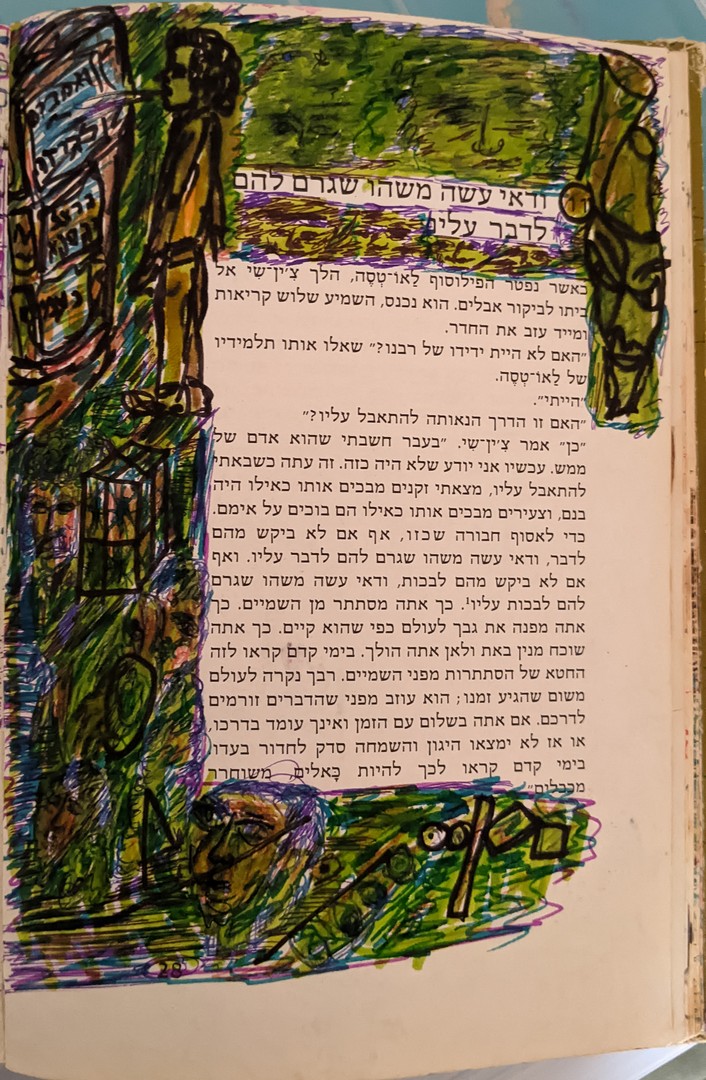 ודאי עשה משהו שגרם להם
לדבר עליו
כאשר נפטר הפילוסוף לַאוֹ־טְסֶה, הלך צִ׳ין־שִי אל
ביתו לביקור אבלים. הוא נכנס, השמיע שלוש קריאות
ומייד עזב את החדר.
״האם לא היית ידידו של רבנו?״ שאלו אותו תלמידיו
של לַאוֹ־טְסֶה.
״הייתי״.
״האם זו הדרך הנאותה להתאבל עליו?״
״כן״ אמר צִ׳ין־שִי. ״בעבר חשבתי שהוא אדם של
ממש. עכשיו אני יודע שלא היה כזה. זה עתה כשבאתי
להתאבל עליו, מצאתי זקנים מבכים אותו כאילו היה
בנם, וצעירים מבכים אותו כאילו הם בוכים על אימם.
כדי לאסוף חבורה שכזו, אף אם לא ביקש מהם
לדבר, ודאי עשה משהו שגרם להם לדבר עליו. ואף
אם לא ביקש מהם לבכות, ודאי עשה משהו שגרם
להם לבכות עליו¹. כך אתה מסתתר מן השמיים. כך
אתה מפנה את גבך לעולם כפי שהוא קיים. כך אתה
שוכח מנין באת ולאן אתה הולך. בימי קדם קראו לזה
החטא של הסתתרות מפני השמיים. רבך נקרה לעולם
משום שהגיע זמנו; הוא עוזב מפני שהדברים זורמים
לדרכם. אם אתה בשלום עם הזמן ואינך עומד בדרכו,
או אז לא ימצאו היגון והשמחה סדק לחדור בעדו
בימי קדם קראו לכך להיות כָּאלים משוחרר
מכבלים״
28